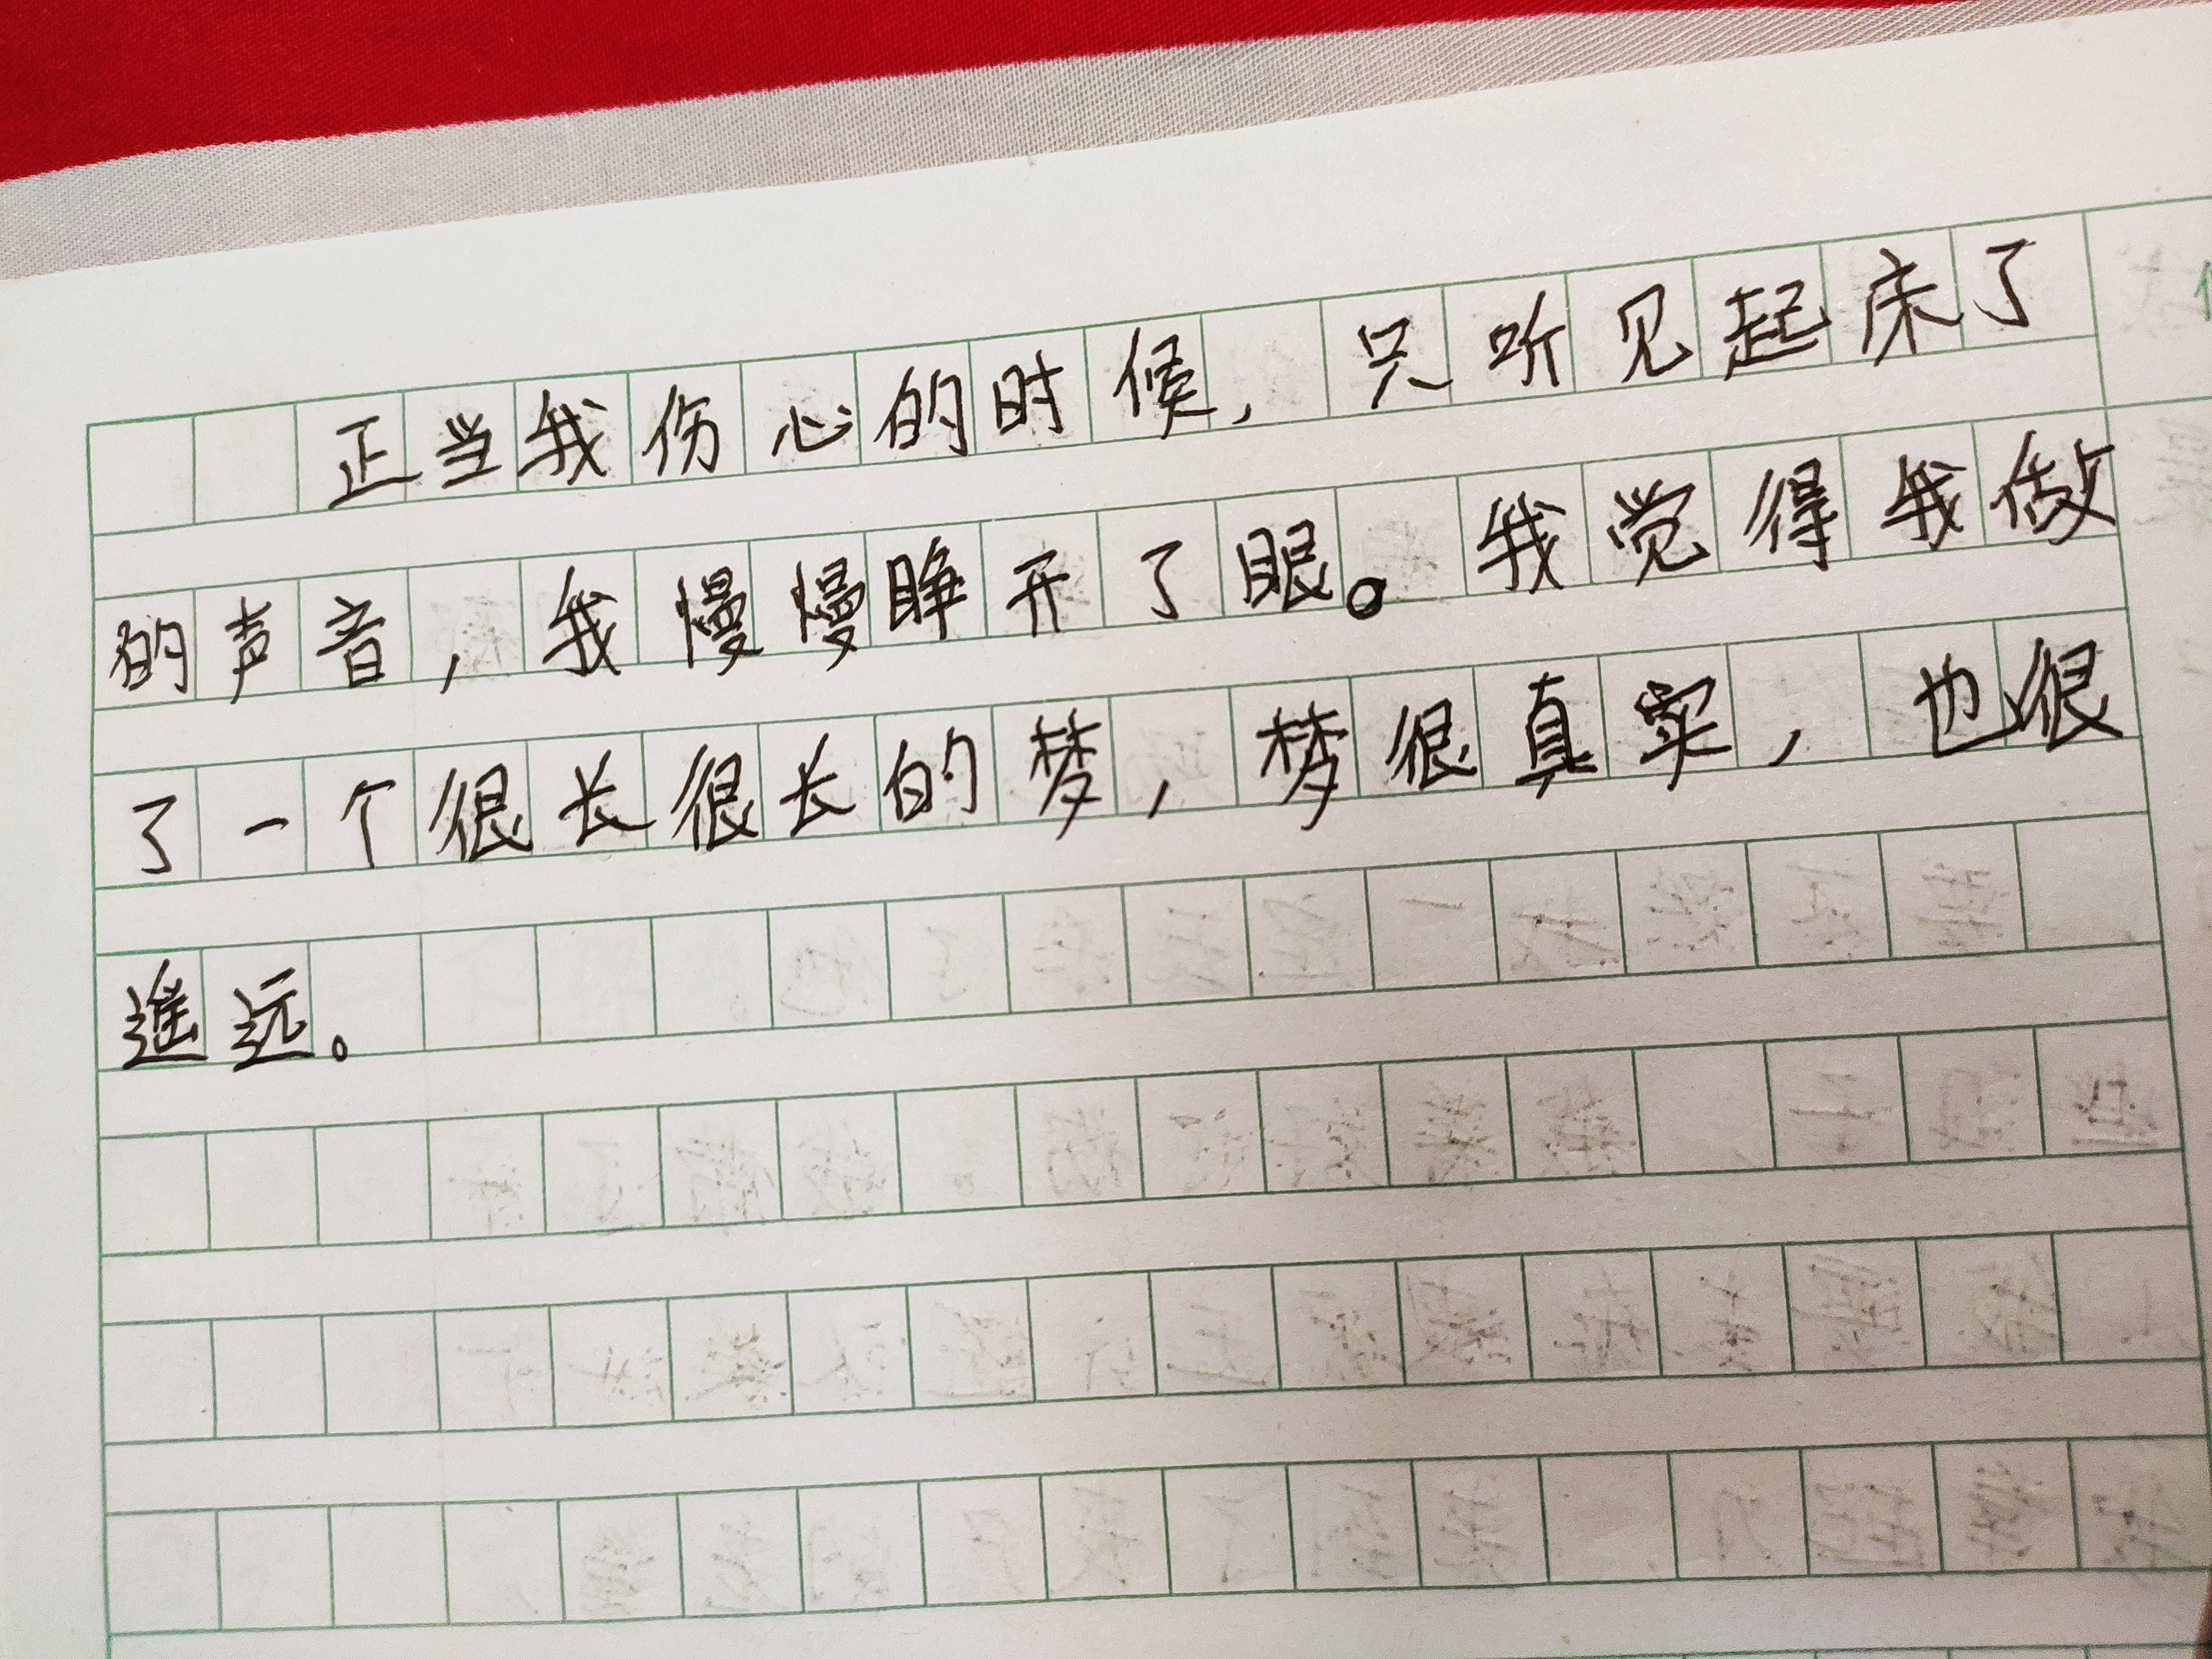 正当我伤心的时候，只听见起床了
的声音，我慢慢睁开了眼。我觉得我做
了一个很长很长的梦，梦很真实，也很
遥远。